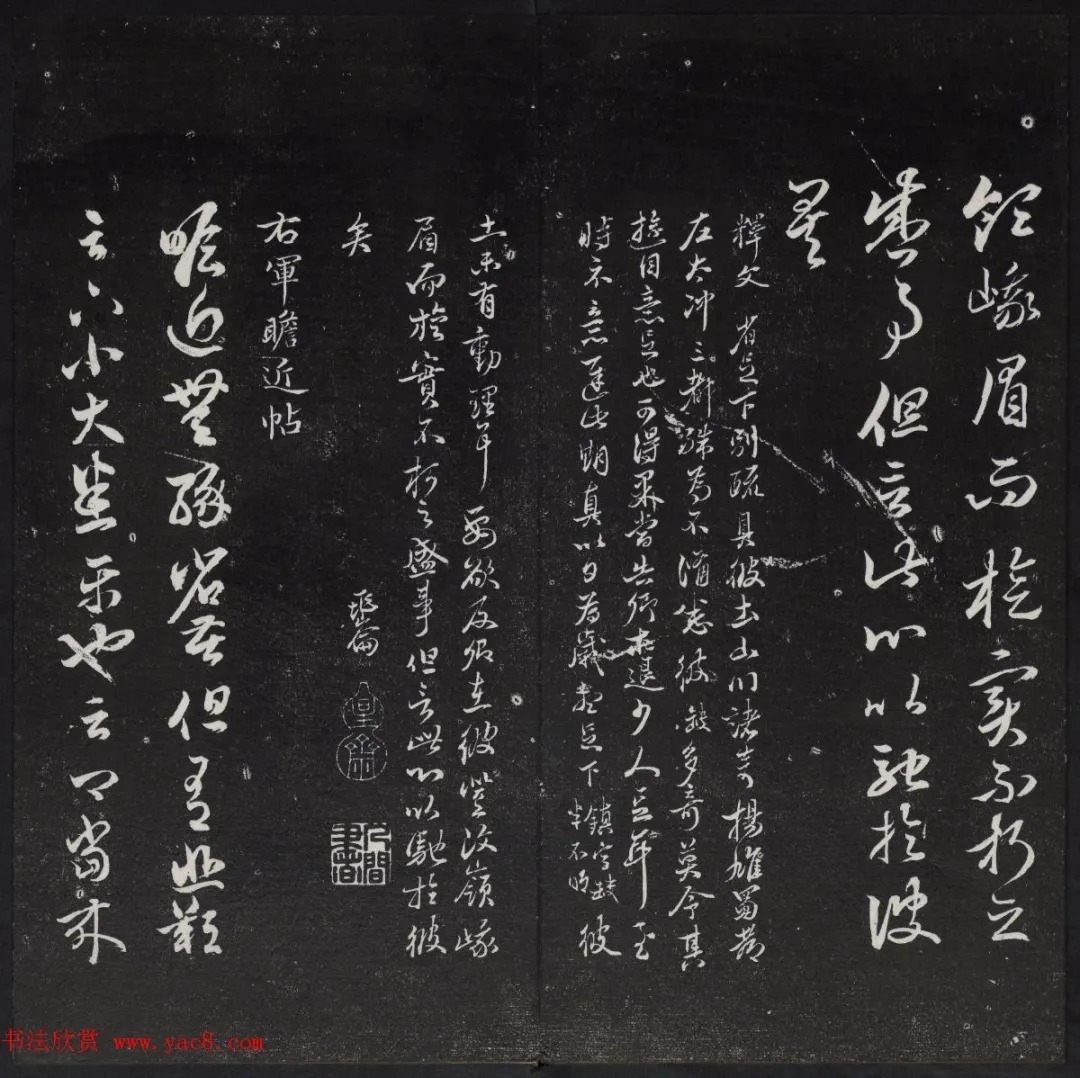 領峨眉而旋實不朽之
盛事但言此心以馳於彼
矣
釋文 省足下別疏具彼土山川諸奇楊雄蜀都
左太沖三都殊為不備悉彼故多奇益令其
遊目意足也可得果當告卿求迎少人足耳至
時示意遲此期真以日為歲想足下鎮字缺半不明彼
土未有動理耳 要欲及卿在彼登汶嶺峨
眉而旋實不朽之盛事但言此心以馳於彼
矣
皇帝
右軍瞻近帖
瞻近無緣省苦但有悲歎
足下小大悉平也云卿當來
书法欣赏 www.yac8.com